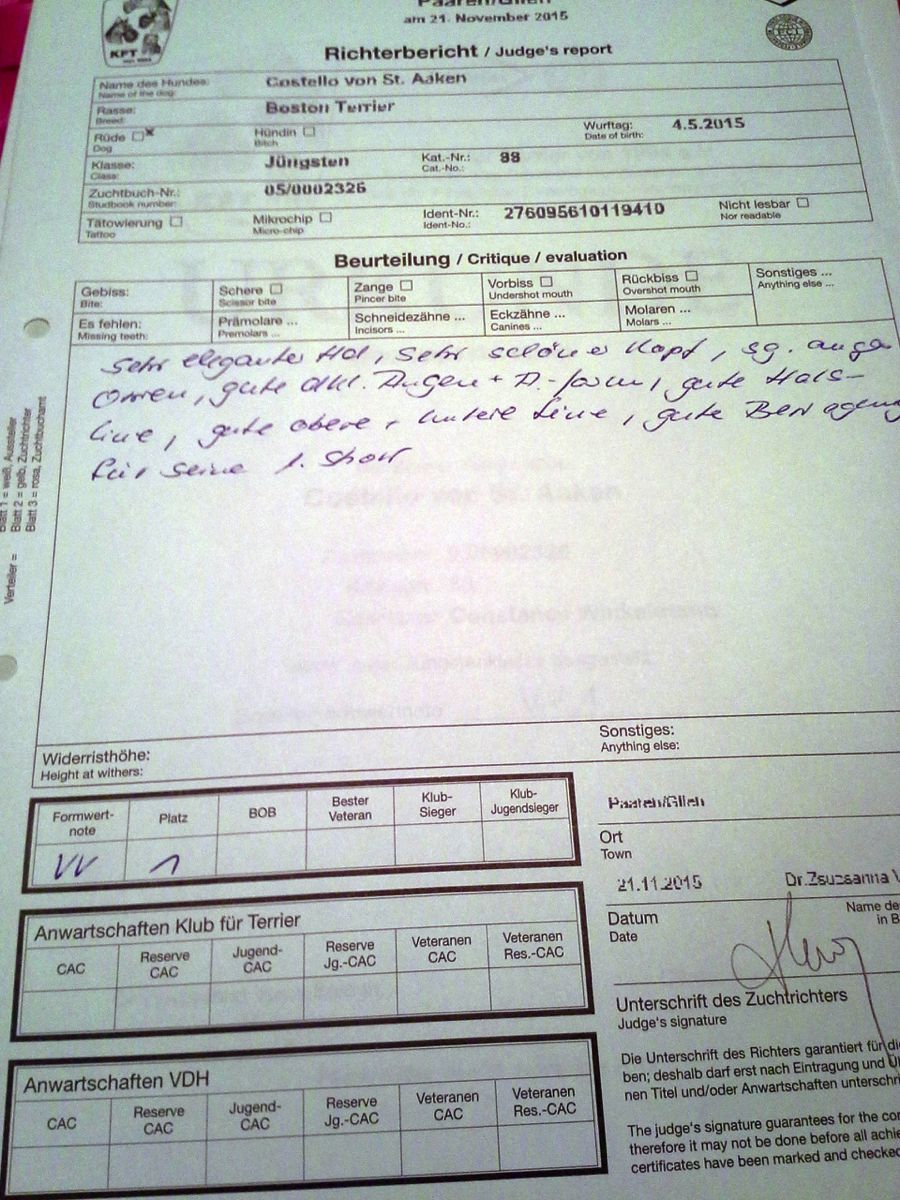 Paaren/Glien
am 21. November 2015
KFT
Richterbericht / Judge's report
Name des Hundes: Costello von St. Aaken
Name of the dog:
Rasse: Boston Terrier
Breed:
Rüde ☒ Hündin ☐ Wurftag: 4.5.2015
Dog Bitch Date of birth:
Klasse: Jüngsten Kat.-Nr.: 98
Class: Cat.-No.:
Zuchtbuch-Nr.: 05/0002326
Studbook number:
Tätowierung ☐ Mikrochip ☐ Ident-Nr.: 276095610119410 Nicht lesbar ☐
Tattoo Micro-chip Ident-No.: Nor readable
Beurteilung / Critique / evaluation
Gebiss: Schere ☐ Zange ☐ Vorbiss ☐ Rückbiss ☐ Sonstiges ...
Bite: Scissor bite Pincer bite Undershot mouth Overshot mouth Anything else ...
Es fehlen: Prämolare ... Schneidezähne ... Eckzähne ... Molaren ...
Missing teeth: Premolars ... Incisors ... Canines ... Molars ...
Sehr eleganter, sehr schöner Kopf, sg.
Ohren, gute dkl. Augen + A.-form, gute Hals-
linie, gute obere + untere Linie, gute
für seine 1. Show
Verteiler = Blatt 1 = weiß, Aussteller
Blatt 2 = gelb, Zuchtrichter
Blatt 3 = rosa, Zuchtbuchamt
Widerristhöhe: Sonstiges:
Height at withers: Anything else:
Formwert-note Platz BOB Bester Veteran Klub-Sieger Klub-Jugendsieger
VV 1
Paaren/Glien
Ort
Town
21.11.2015 Dr.Zsuzsanna
Datum Name de
Date in B
Unterschrift des Zuchtrichters
Judge's signature
Anwartschaften Klub für Terrier
CAC Reserve CAC Jugend-CAC Reserve Jg.-CAC Veteranen CAC Veteranen Res.-CAC
Anwartschaften VDH
CAC Reserve CAC Jugend-CAC Reserve Jg.-CAC Veteranen CAC Veteranen Res.-CAC
Die Unterschrift des Richters garantiert für di
ben; deshalb darf erst nach Eintragung und U
nen Titel und/oder Anwartschaften unterschri
The judge's signature guarantees for the cor
therefore it may not be done before all achie
certificates have been marked and checked